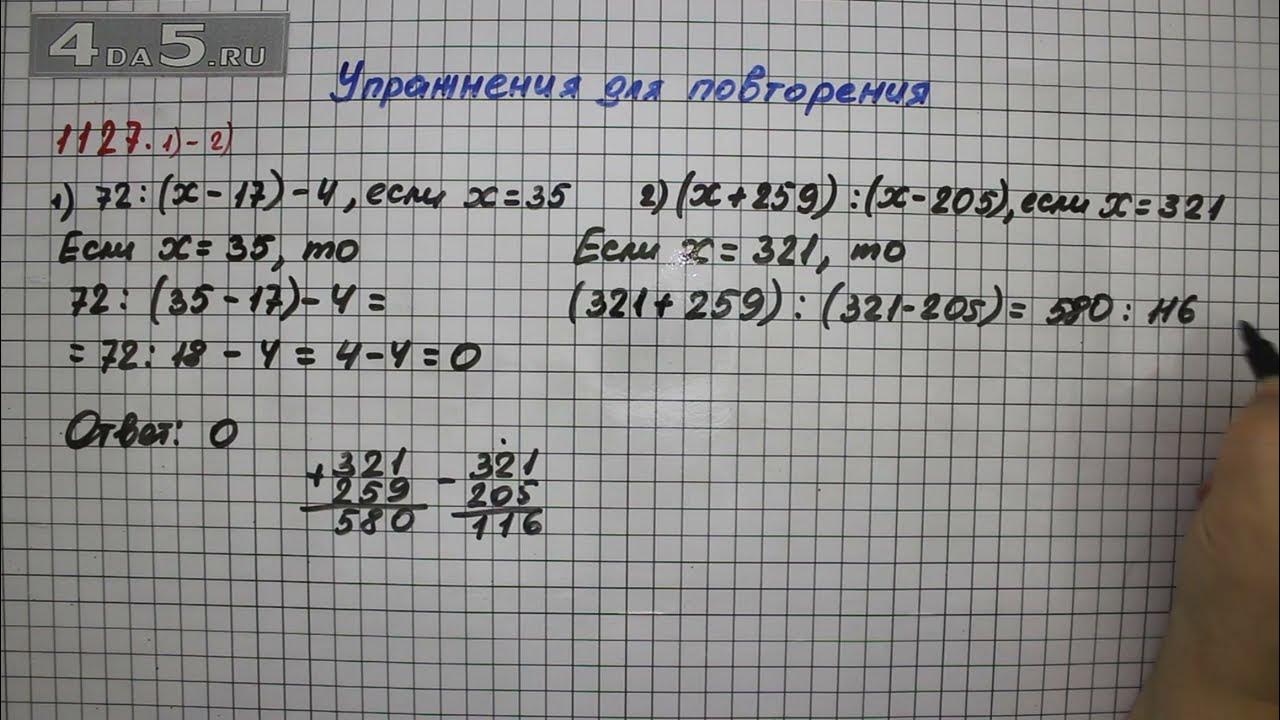 4DA5.RU
Упражнения для повторения
1127. 1)-2)
1) 72:(x-17)-4, если x=35
Если x=35, то
72: (35-17)-4=
=72: 18 - 4 = 4-4=0
Ответ: 0
2)(x+259):(x-205), если x=321
Если x=321, то
(321+259):(321-205)= 580: 116
+321
259
580
-321
205
116